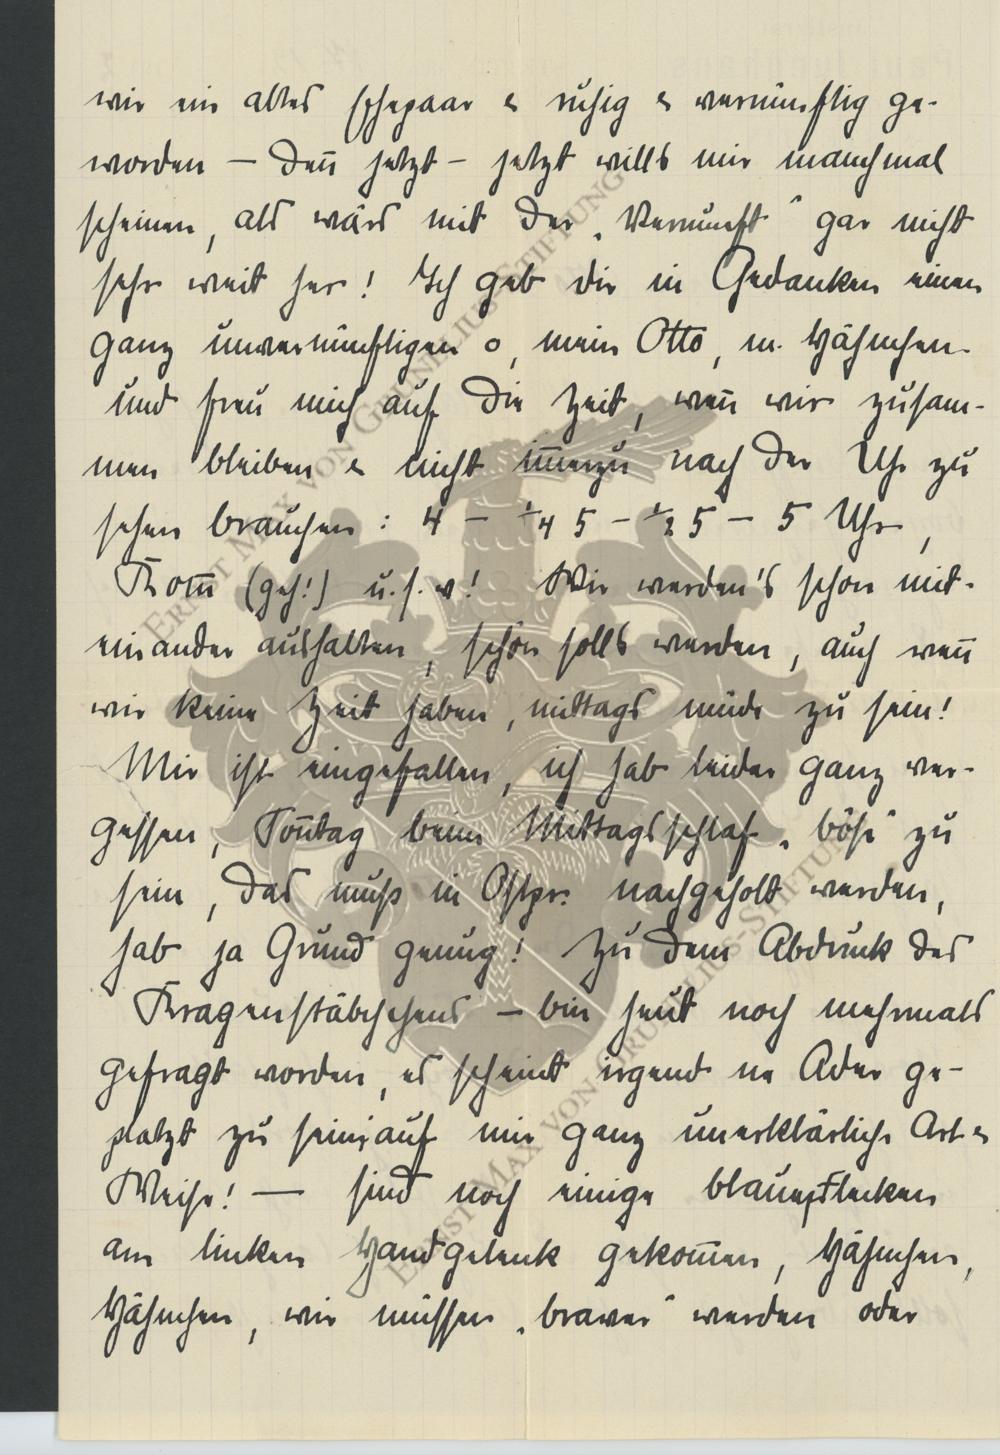 wie ein altes Ehepaar & ruhig & vernünftig ge-
worden — den̄ jetzt — jetzt wills mir manchmal
scheinen, als wärs mit der „Vernunft" gar nicht
sehr weit her! Ich geb dir in Gedanken einen
ganz unvernünftigen o, mein Otto, m. Hähnchen
und freu mich auf die Zeit, wen̄ wir zusam-
men bleiben & nicht im̄erzu nach der Uhr zu
sehen brauchen: 4 — ¼ 5 — ½ 5 — 5 Uhr,
Kom̄ (geh!) u.s.w! Wir werden's schon mit-
einander aushalten, schön solls werden, auch wen̄
wir keine Zeit haben, mittags müde zu sein!
Mir ist eingefallen, ich hab leider ganz ver-
gessen, Son̄tag beim Mittagsschlaf „böse" zu
sein, das muß in Ostpr. nachgeholt werden,
hab ja Grund genug! Zu dem Abdruck des
Kragenstäbchens — bin heut noch mehrmals
gefragt worden, es scheint irgend ne Ader ge-
platzt zu sein, auf mir ganz unerklärliche Art &
Weise! — sind noch einige blaue Flecken
am linken Handgelenk gekom̄en, Hähnchen,
Hähnchen, wir müssen „braver" werden oder
ERNST MAX VON GRUNELIUS-STIFTUNG
ERNST MAX VON GRUNELIUS-STIFTUNG